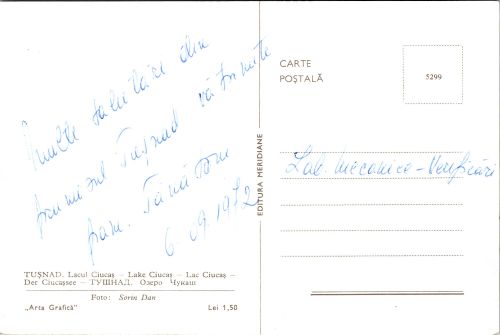 Multe salutări din
frumosul Tușnad vă trimite
fam. Tănătone
6 09 1972
TUȘNAD. Lacul Ciucaș – Lake Ciucaș – Lac Ciucaș –
Der Ciucașsee – ТУШНАД. Озеро Чукаш
Foto: Sorin Dan
„Arta Grafică”
Lei 1,50
EDITURA MERIDIANE
CARTE
POȘTALĂ
5299
Lab. mecanico – Verificări